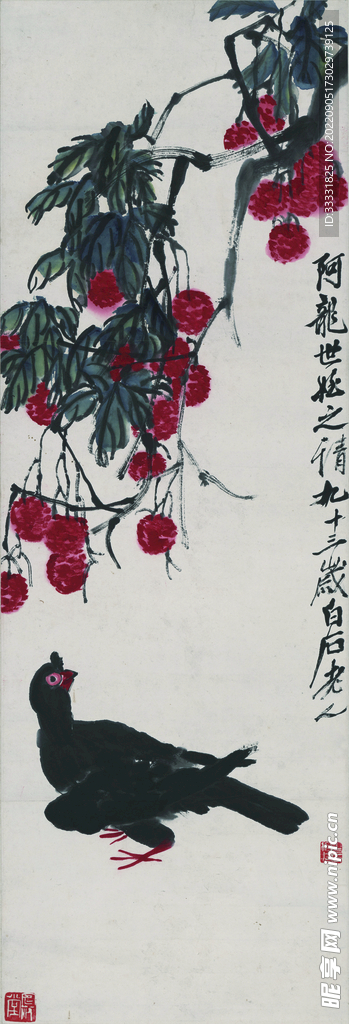 阿龍世姪之請九十三歲白石老人
ID:33331825 NO:20220905173029739125
昵享网 www.nipic.cn